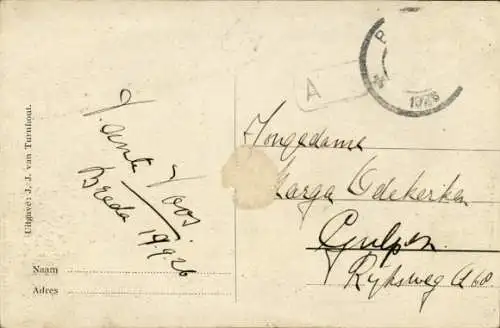 Uitgave: J. J. van Turnhout.
Voos
Breda 19.9.26
Naam
Adres
A
1926
Jongedame
Marga Odekerken
Gulpen.
Rijksweg A 68.